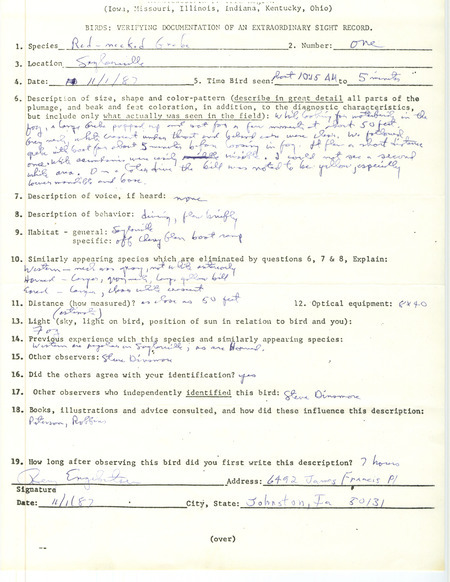 (Iowa, Missouri, Illinois, Indiana, Kentucky, Ohio)
BIRDS: VERIFYING DOCUMENTATION OF AN EXTRAORDINARY SIGHT RECORD.
1. Species Red-necked Grebe 2. Number: one
3. Location Saylorville
4. Date: 11/1/87 5. Time Bird seen: about 10:25 AM to 5 minutes
6. Description of size, shape and color-pattern (describe in great detail all parts of the
plumage, and beak and feet coloration, in addition, to the diagnostic characteristics,
but include only what actually was seen in the field): While looking for in the
fog, a large Grebe popped up not far a few moments at about 50 feet.
Grey neck, white crescent under throat and behind ears were clear. We followed
with boat for about 5 minutes before loosing in fog. It flew a short distance
once, white secondaries were easily visible. I could not see a second
white area. Color from the bill was noted to be yellow, especially
lower mandible and base.
7. Description of voice, if heard: none
8. Description of behavior: diving, flew briefly
9. Habitat - general: Saylorville
specific: off Cherry Glen boat ramp
10. Similarly appearing species which are eliminated by questions 6, 7 & 8, Explain:
Western - neck was gray, not white
Horned - larger, grey neck, large yellow bill
Eared - larger, clear white crescent
11. Distance (how measured)? as close as 50 feet 12. Optical equipment: 8x40
(estimate)
13. Light (sky, light on bird, position of sun in relation to bird and you):
Fog
14. Previous experience with this species and similarly appearing species:
Western are regular in Saylorville, as are Horned.
15. Other observers: Steve Dinsmore
16. Did the others agree with your identification? yes
17. Other observers who independently identified this bird: Steve Dinsmore
18. Books, illustrations and advice consulted, and how did these influence this description:
Peterson, Robbins
19. How long after observing this bird did you first write this description? 7 hours
Address: 6492 James Francis Pl
Signature
Date: 11/1/87 City, State: Johnston, Ia 50131
(over)